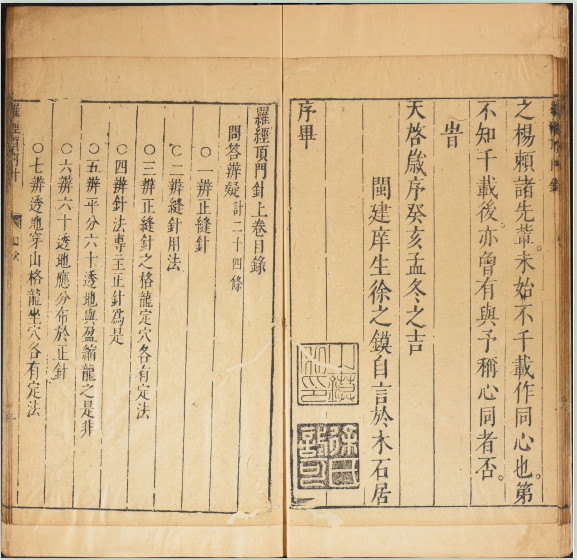 之楊賴諸先輩。未始不千載作同心也。第
不知千載後。亦曾有與予稱心同者否。
旹
天啓歲序癸亥孟冬之吉
閩建庠生徐之鏌自言於木石居
序畢
羅經頂門針上卷目錄
問答辨疑計二十四條
○一辨正縫針
○二辨縫針用法
○三辨正縫針之格龍定穴各有定法
○四辨針法專主正針爲是
○五辨平分六十透地與盈縮龍之是非
○六辨六十透地應分布於正針
○七辨透地穿山格龍坐穴各有定法
羅經頂門針